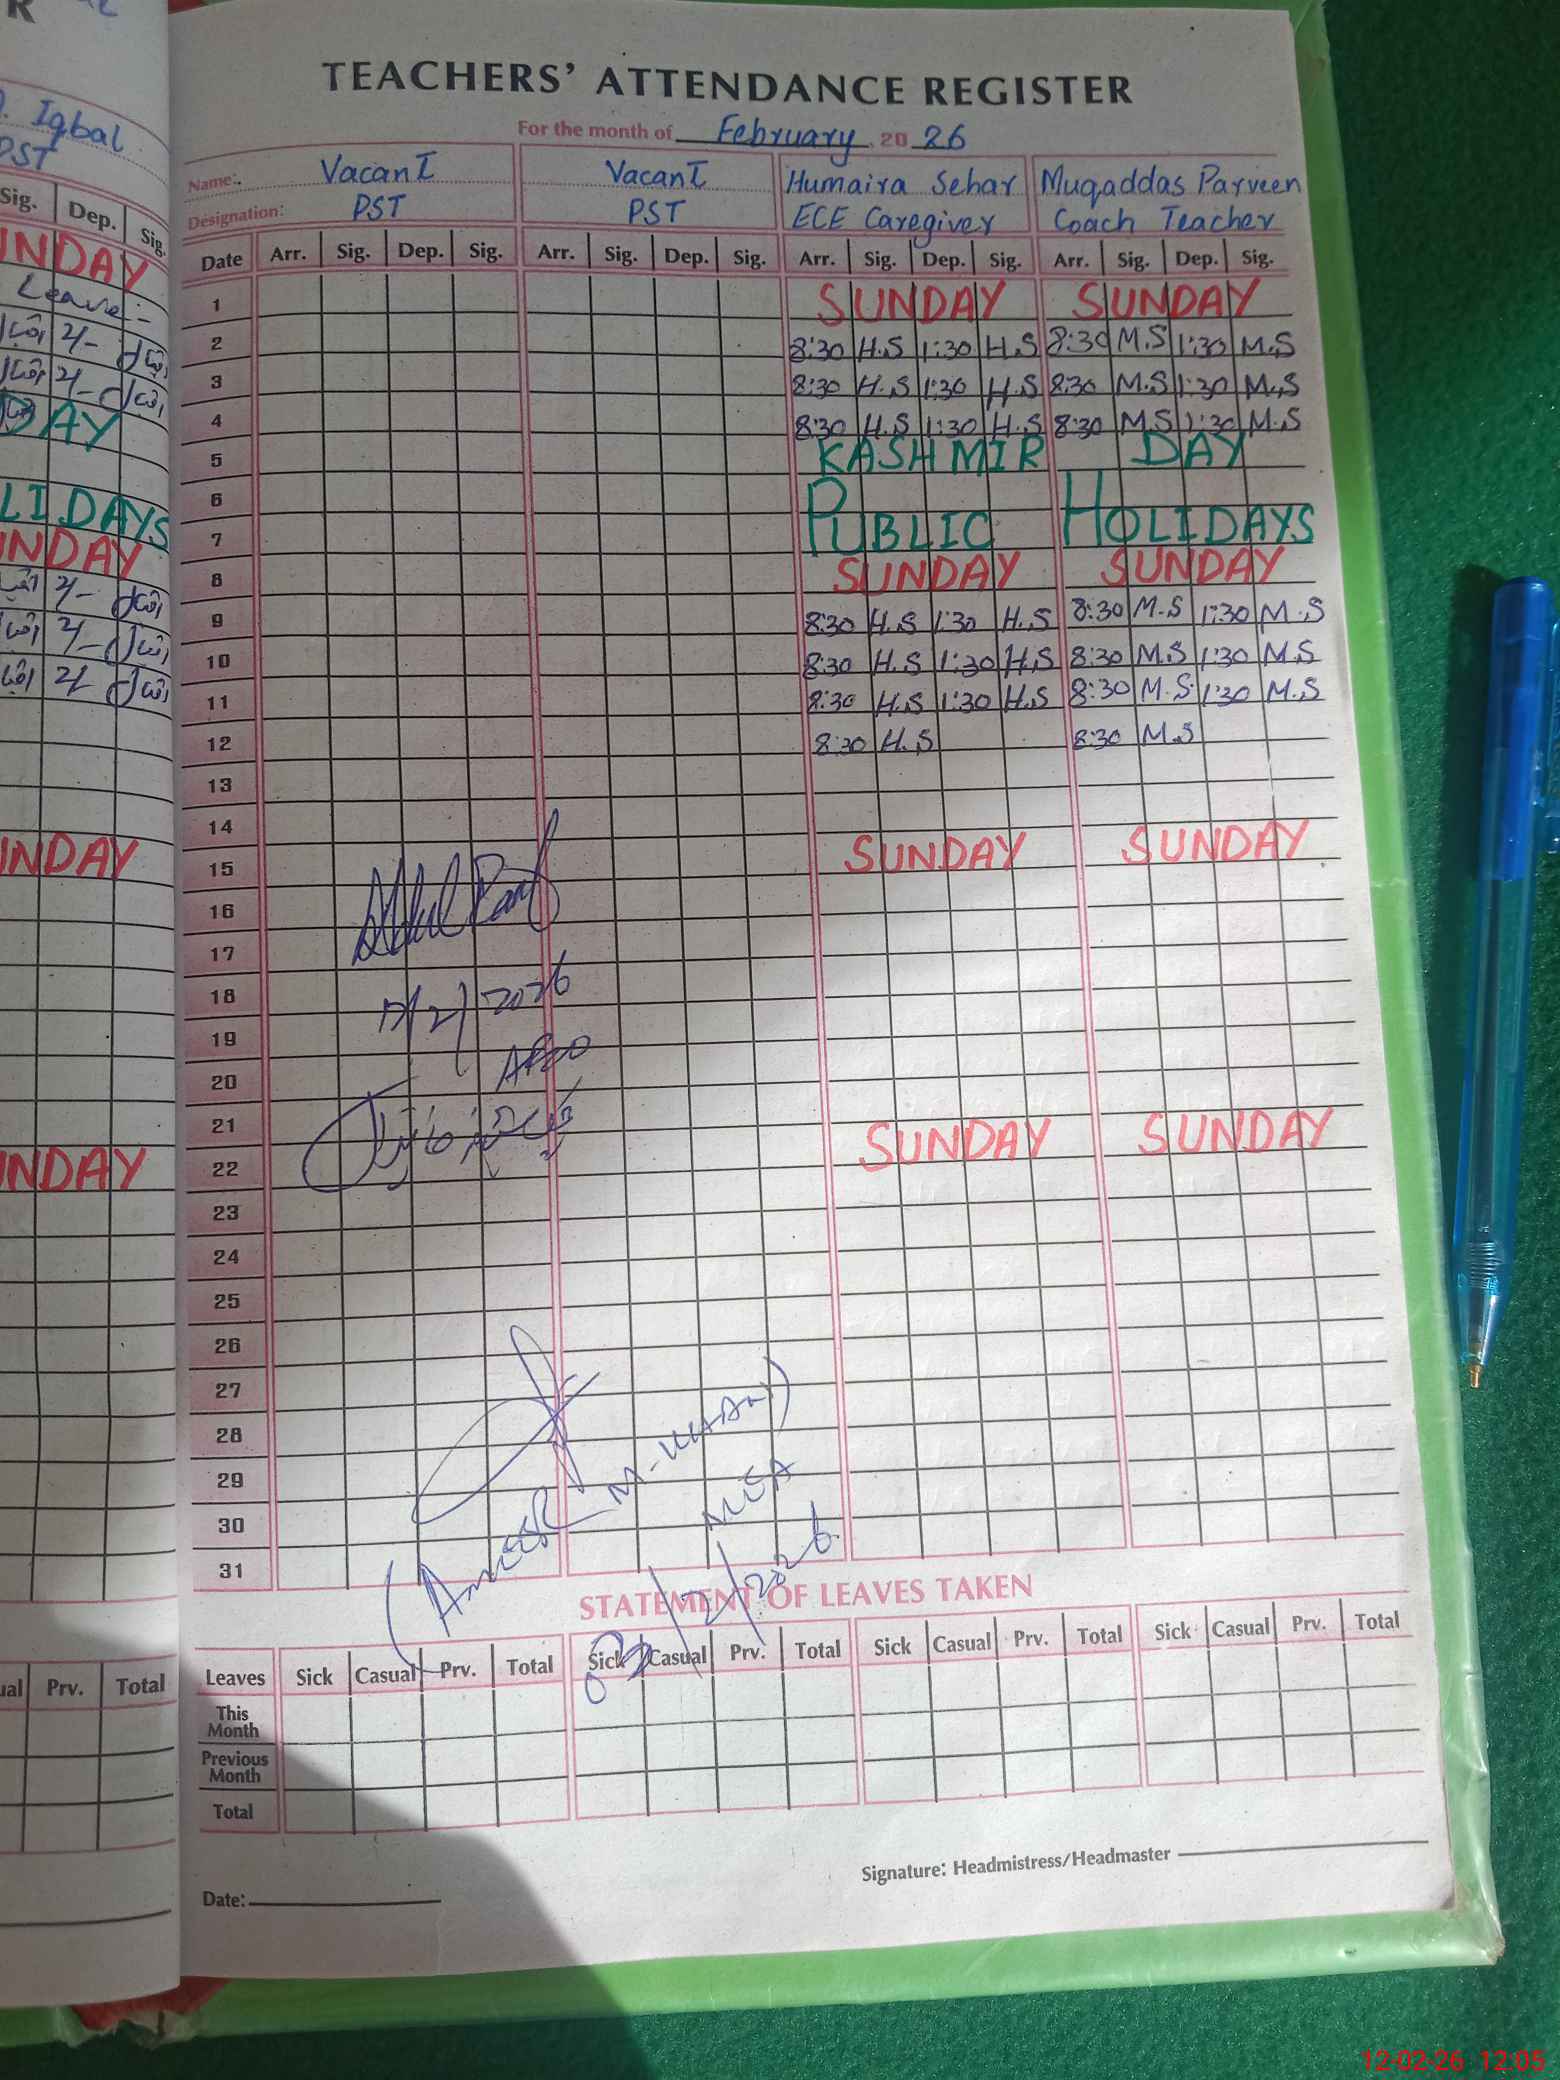 TEACHERS' ATTENDANCE REGISTER
For the month of February 2026
Name: VacanT VacanT Humaira Sehar Muqaddas Parveen
Designation: PST PST ECE Caregiver Coach Teacher
Date Arr. Sig. Dep. Sig. Arr. Sig. Dep. Sig. Arr. Sig. Dep. Sig. Arr. Sig. Dep. Sig.
1 SUNDAY SUNDAY
2 8:30 H.S 1:30 H.S 8:30 M.S 1:30 M.S
3 8:30 H.S 1:30 H.S 8:30 M.S 1:30 M.S
4 8:30 H.S 1:30 H.S 8:30 M.S 1:30 M.S
5 KASHMIR DAY
6
7 PUBLIC HOLIDAYS
8 SUNDAY SUNDAY
9 8:30 H.S 1:30 H.S 8:30 M.S 1:30 M.S
10 8:30 H.S 1:30 H.S 8:30 M.S 1:30 M.S
11 8:30 H.S 1:30 H.S 8:30 M.S 1:30 M.S
12 8:30 H.S 8:30 M.S
13
14
15 SUNDAY SUNDAY
16
17
18
19
20
21
22 SUNDAY SUNDAY
23
24
25
26
27
28
29
30
31
STATEMENT OF LEAVES TAKEN
Leaves Sick Casual Prv. Total Sick Casual Prv. Total Sick Casual Prv. Total Sick Casual Prv. Total
This Month
Previous Month
Total
Signature: Headmistress/Headmaster
Date:
Iqbal
PST
Sig. Dep. Sig.
Leave
DAY
Prv. Total
12-02-26 12:05